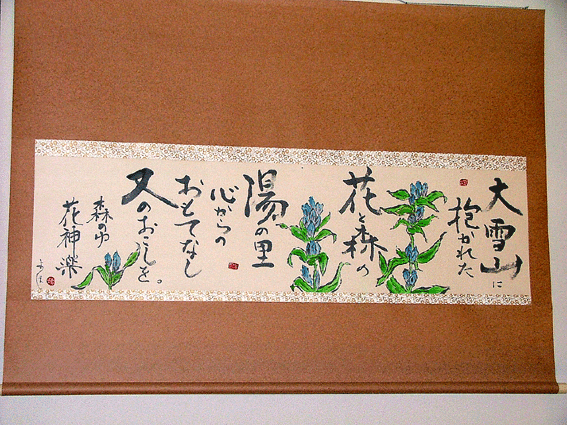 大雪山に
抱かれた
花と森の
湯の里
心からの
おもてなし
又のおこしを。
森の中
花神楽